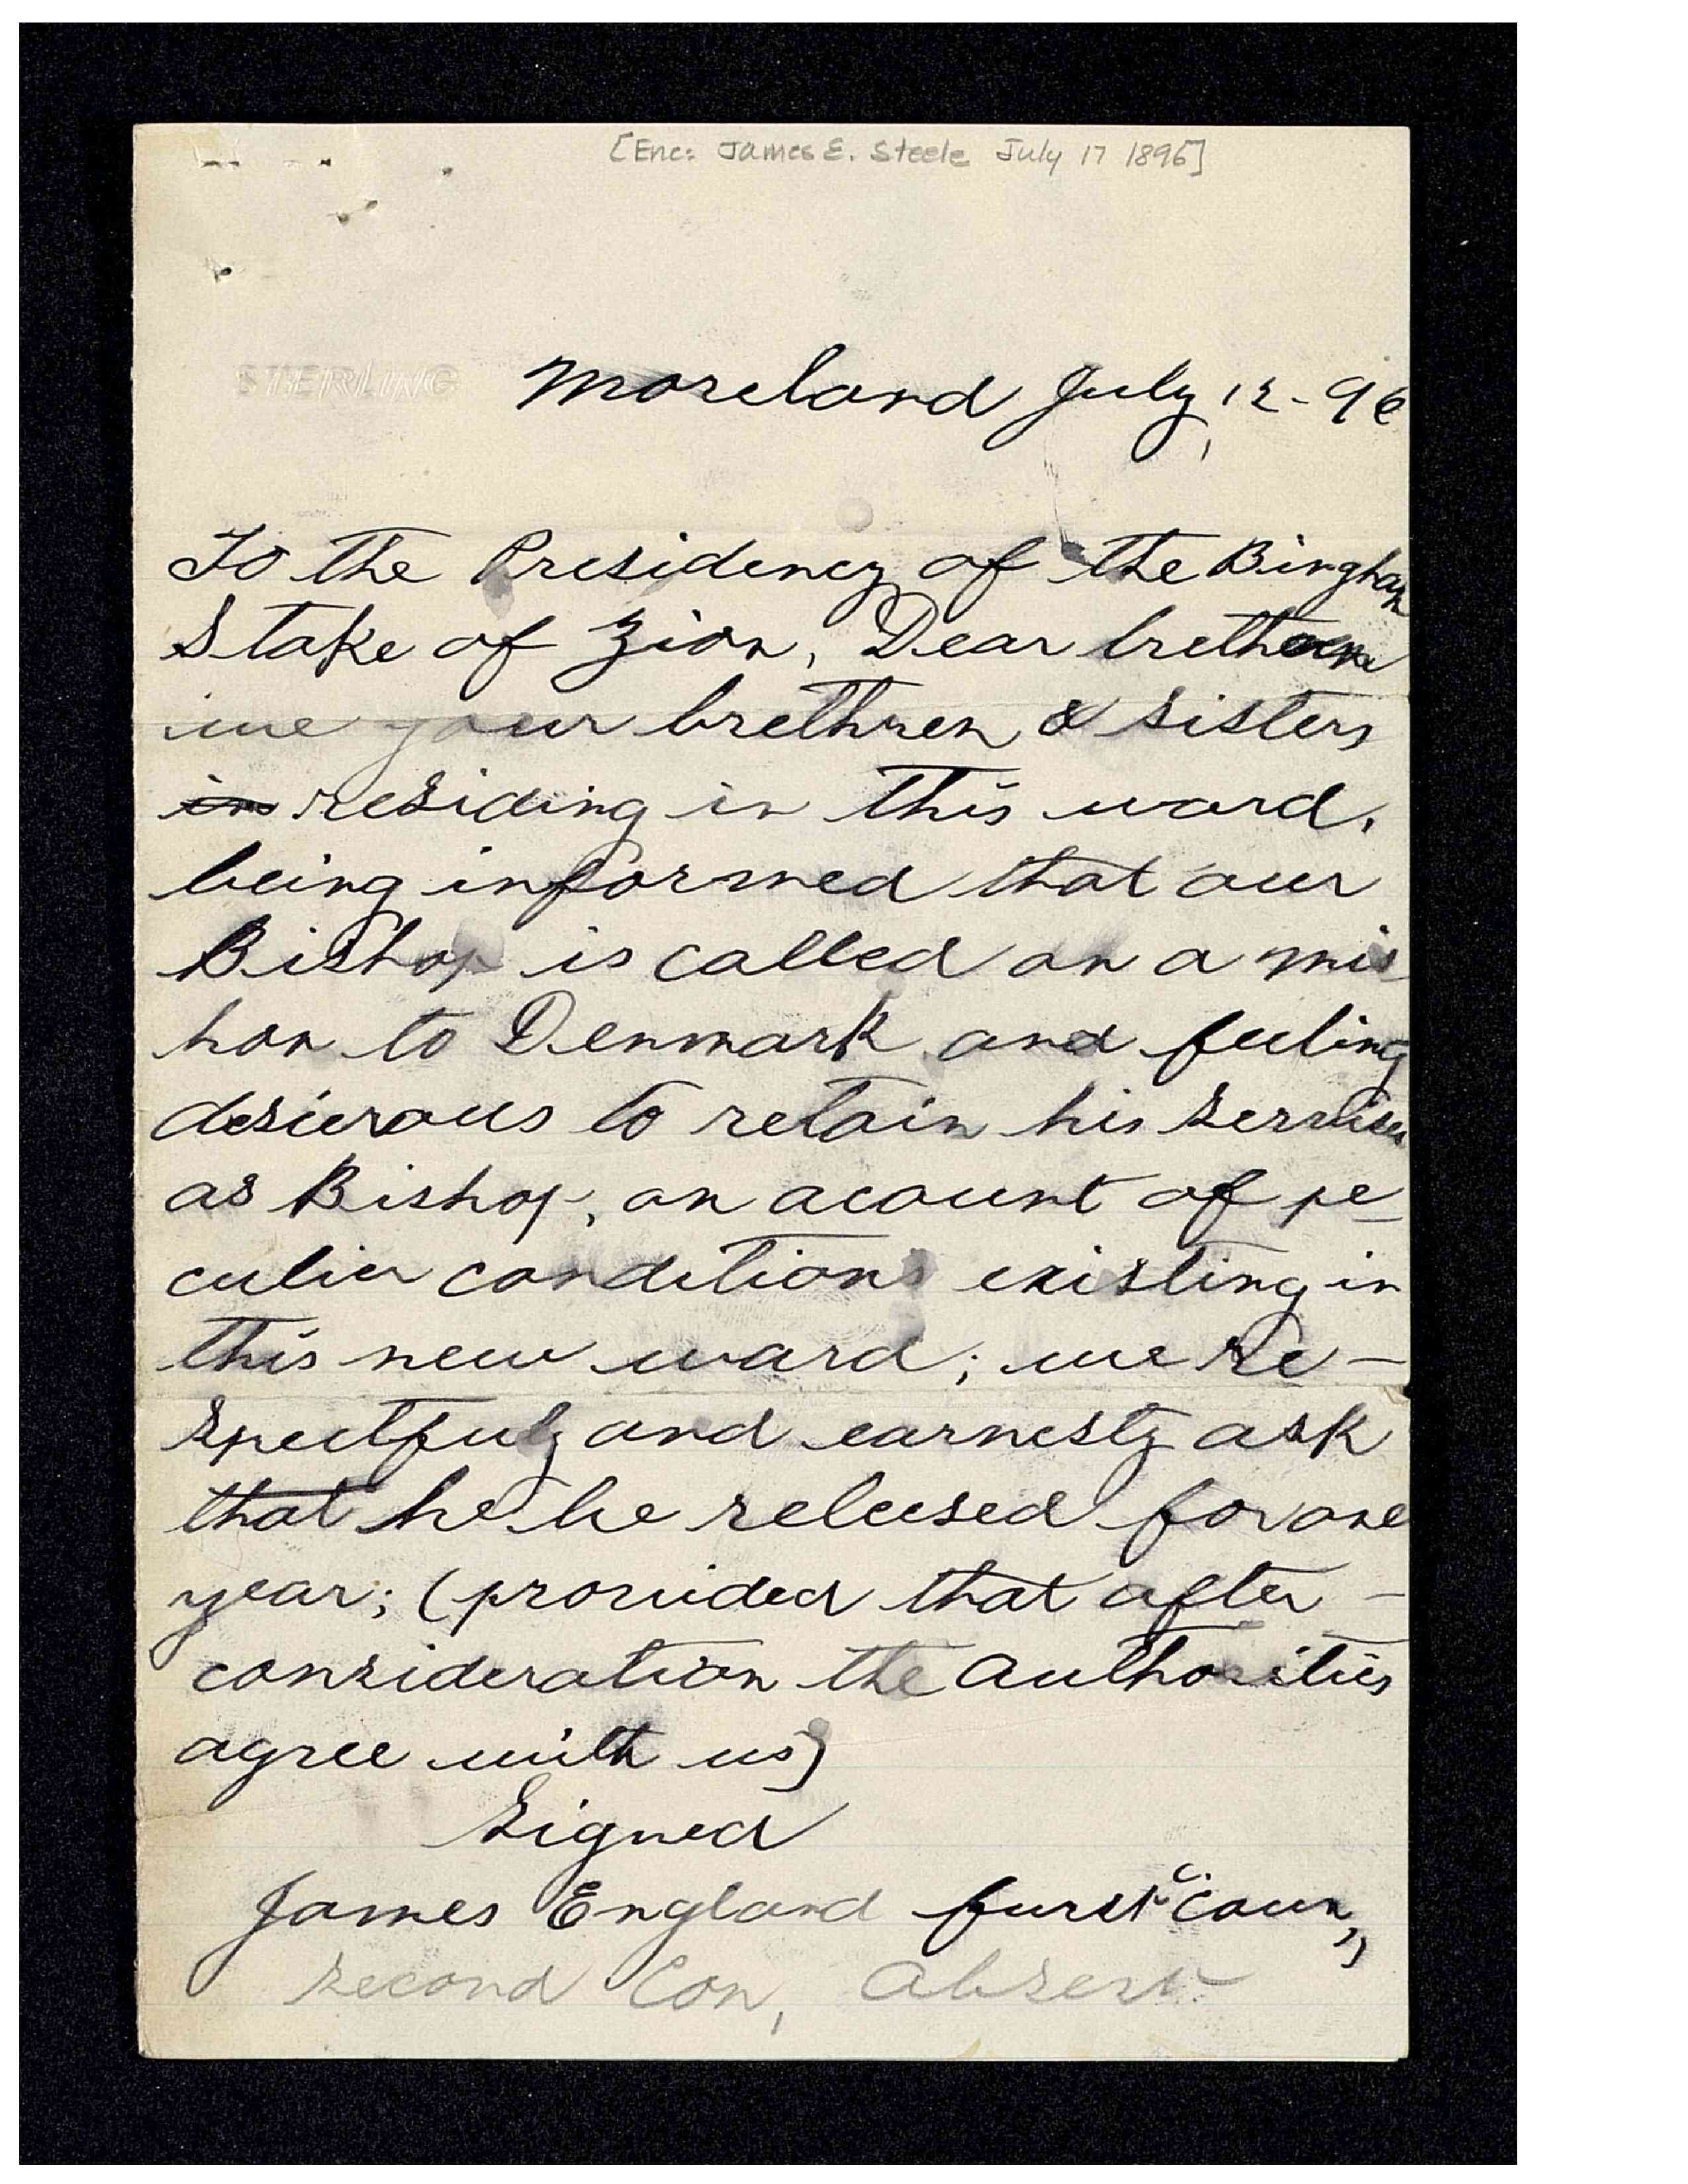 [Enc: James E. Steele July 17 1896]
STERLING
Moreland July, 12-96
To the Presidency of the Bingham
Stake of Zion, Dear brethern
we your brethren & sisters
in residing in this ward,
being informed that our
Bishop is called on a mis
hon to Denmark and feeling
desierous to retain his servises
as Bishop, on acount of pe-
culier conditions existing in
this new ward; we re-
spectfuly and earnestly ask
that he be releesed for one
year; (provided that after -
consideration the authorities
agree with us)
Signed
James England furst Coun,,
second Con, Absent